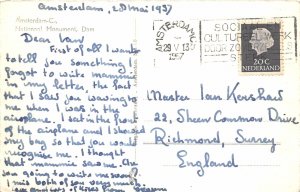 Amsterdam, 28 mai 1957
Amsterdam-C.,
National Monument, Dam
Dear Ian
First of all I want to
tell you something I
forgot to write mammie
in my letter, the fact
that I saw you waving to
me when I was in the
airoplane. I sat in the front
of the airoplane and I showed
my bag so that you would
recognise me. I thought
that mammie saw me. Are
you going to write me soon?
I miss both of you very much.
Love and
AMSTERDAM
29 V 13
1957
SOC
CULTURE
DOOR ZO
20 C
NEDERLAND
Master Ian Kershaw
22, Sheen Common Drive
Richmond, Surrey
England